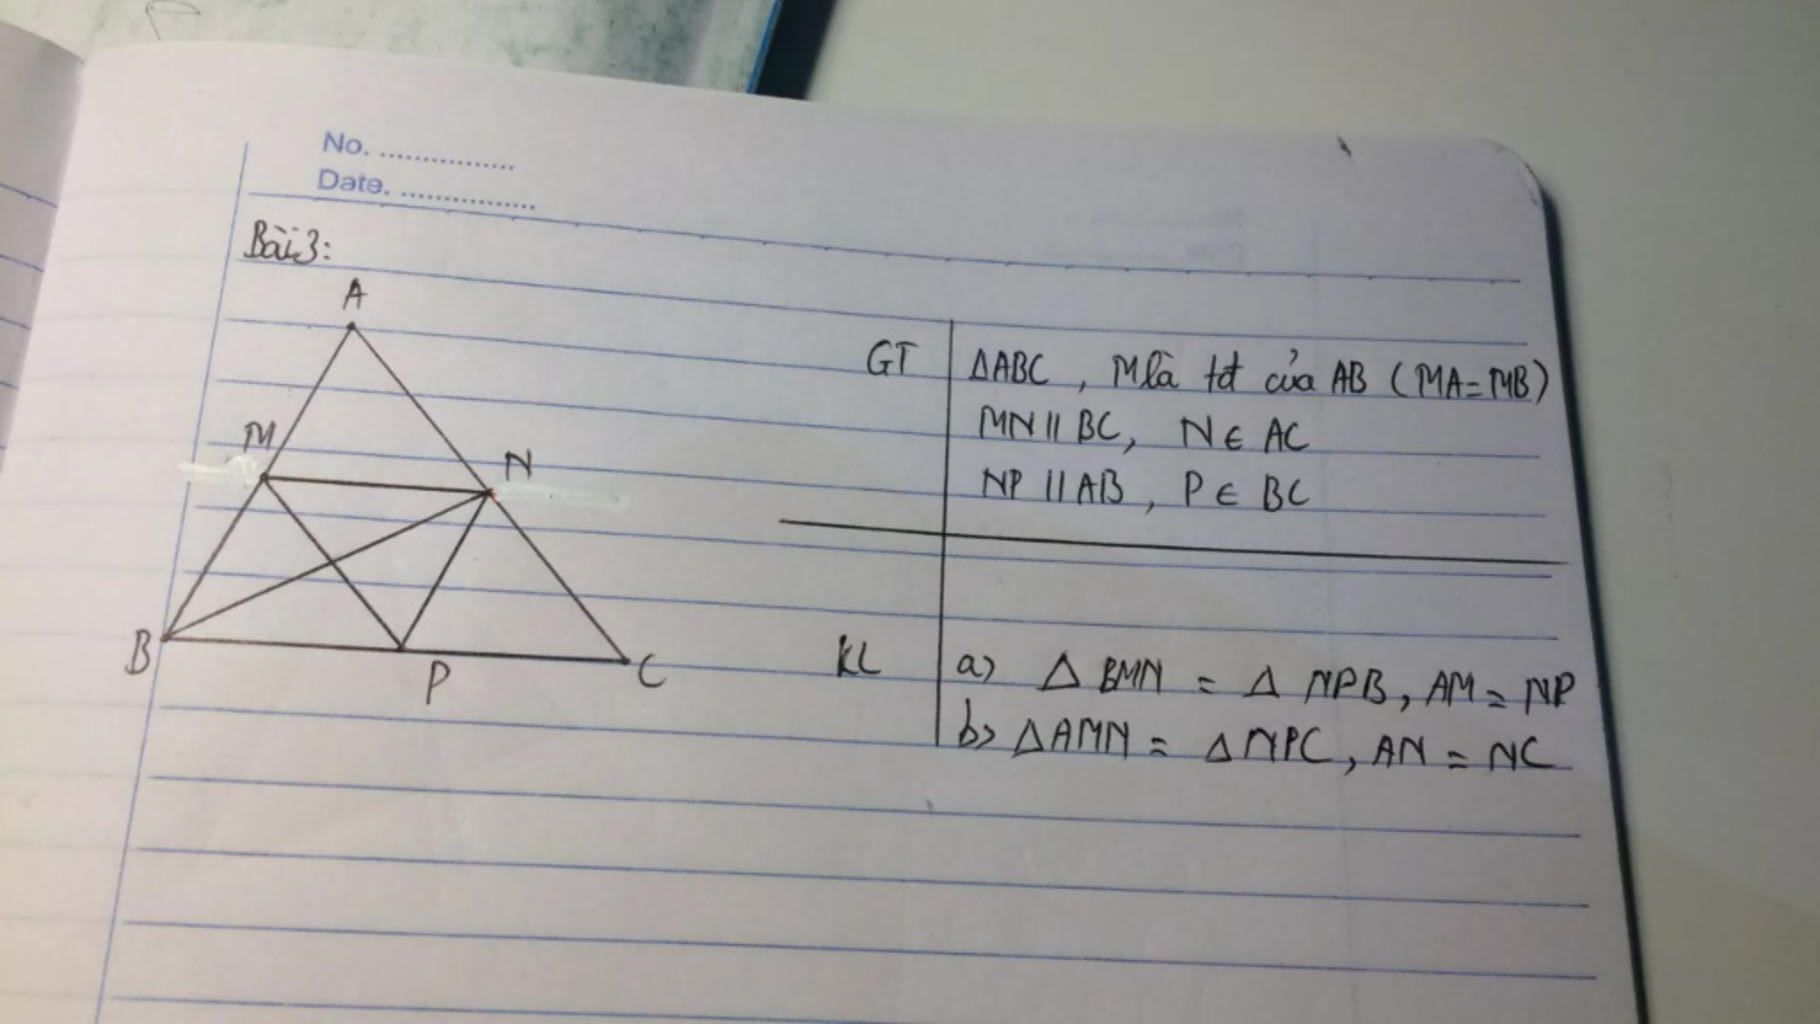 No. ................
Date. ................
Bài 3:
A
M
N
B
P
C
GT
ΔABC , M là tđ của AB (MA=MB)
MN // BC, N ∈ AC
NP // AB , P ∈ BC
KL
a) Δ BMN = Δ NPB, AM = NP
b> ΔAMN = Δ NPC, AN = NC